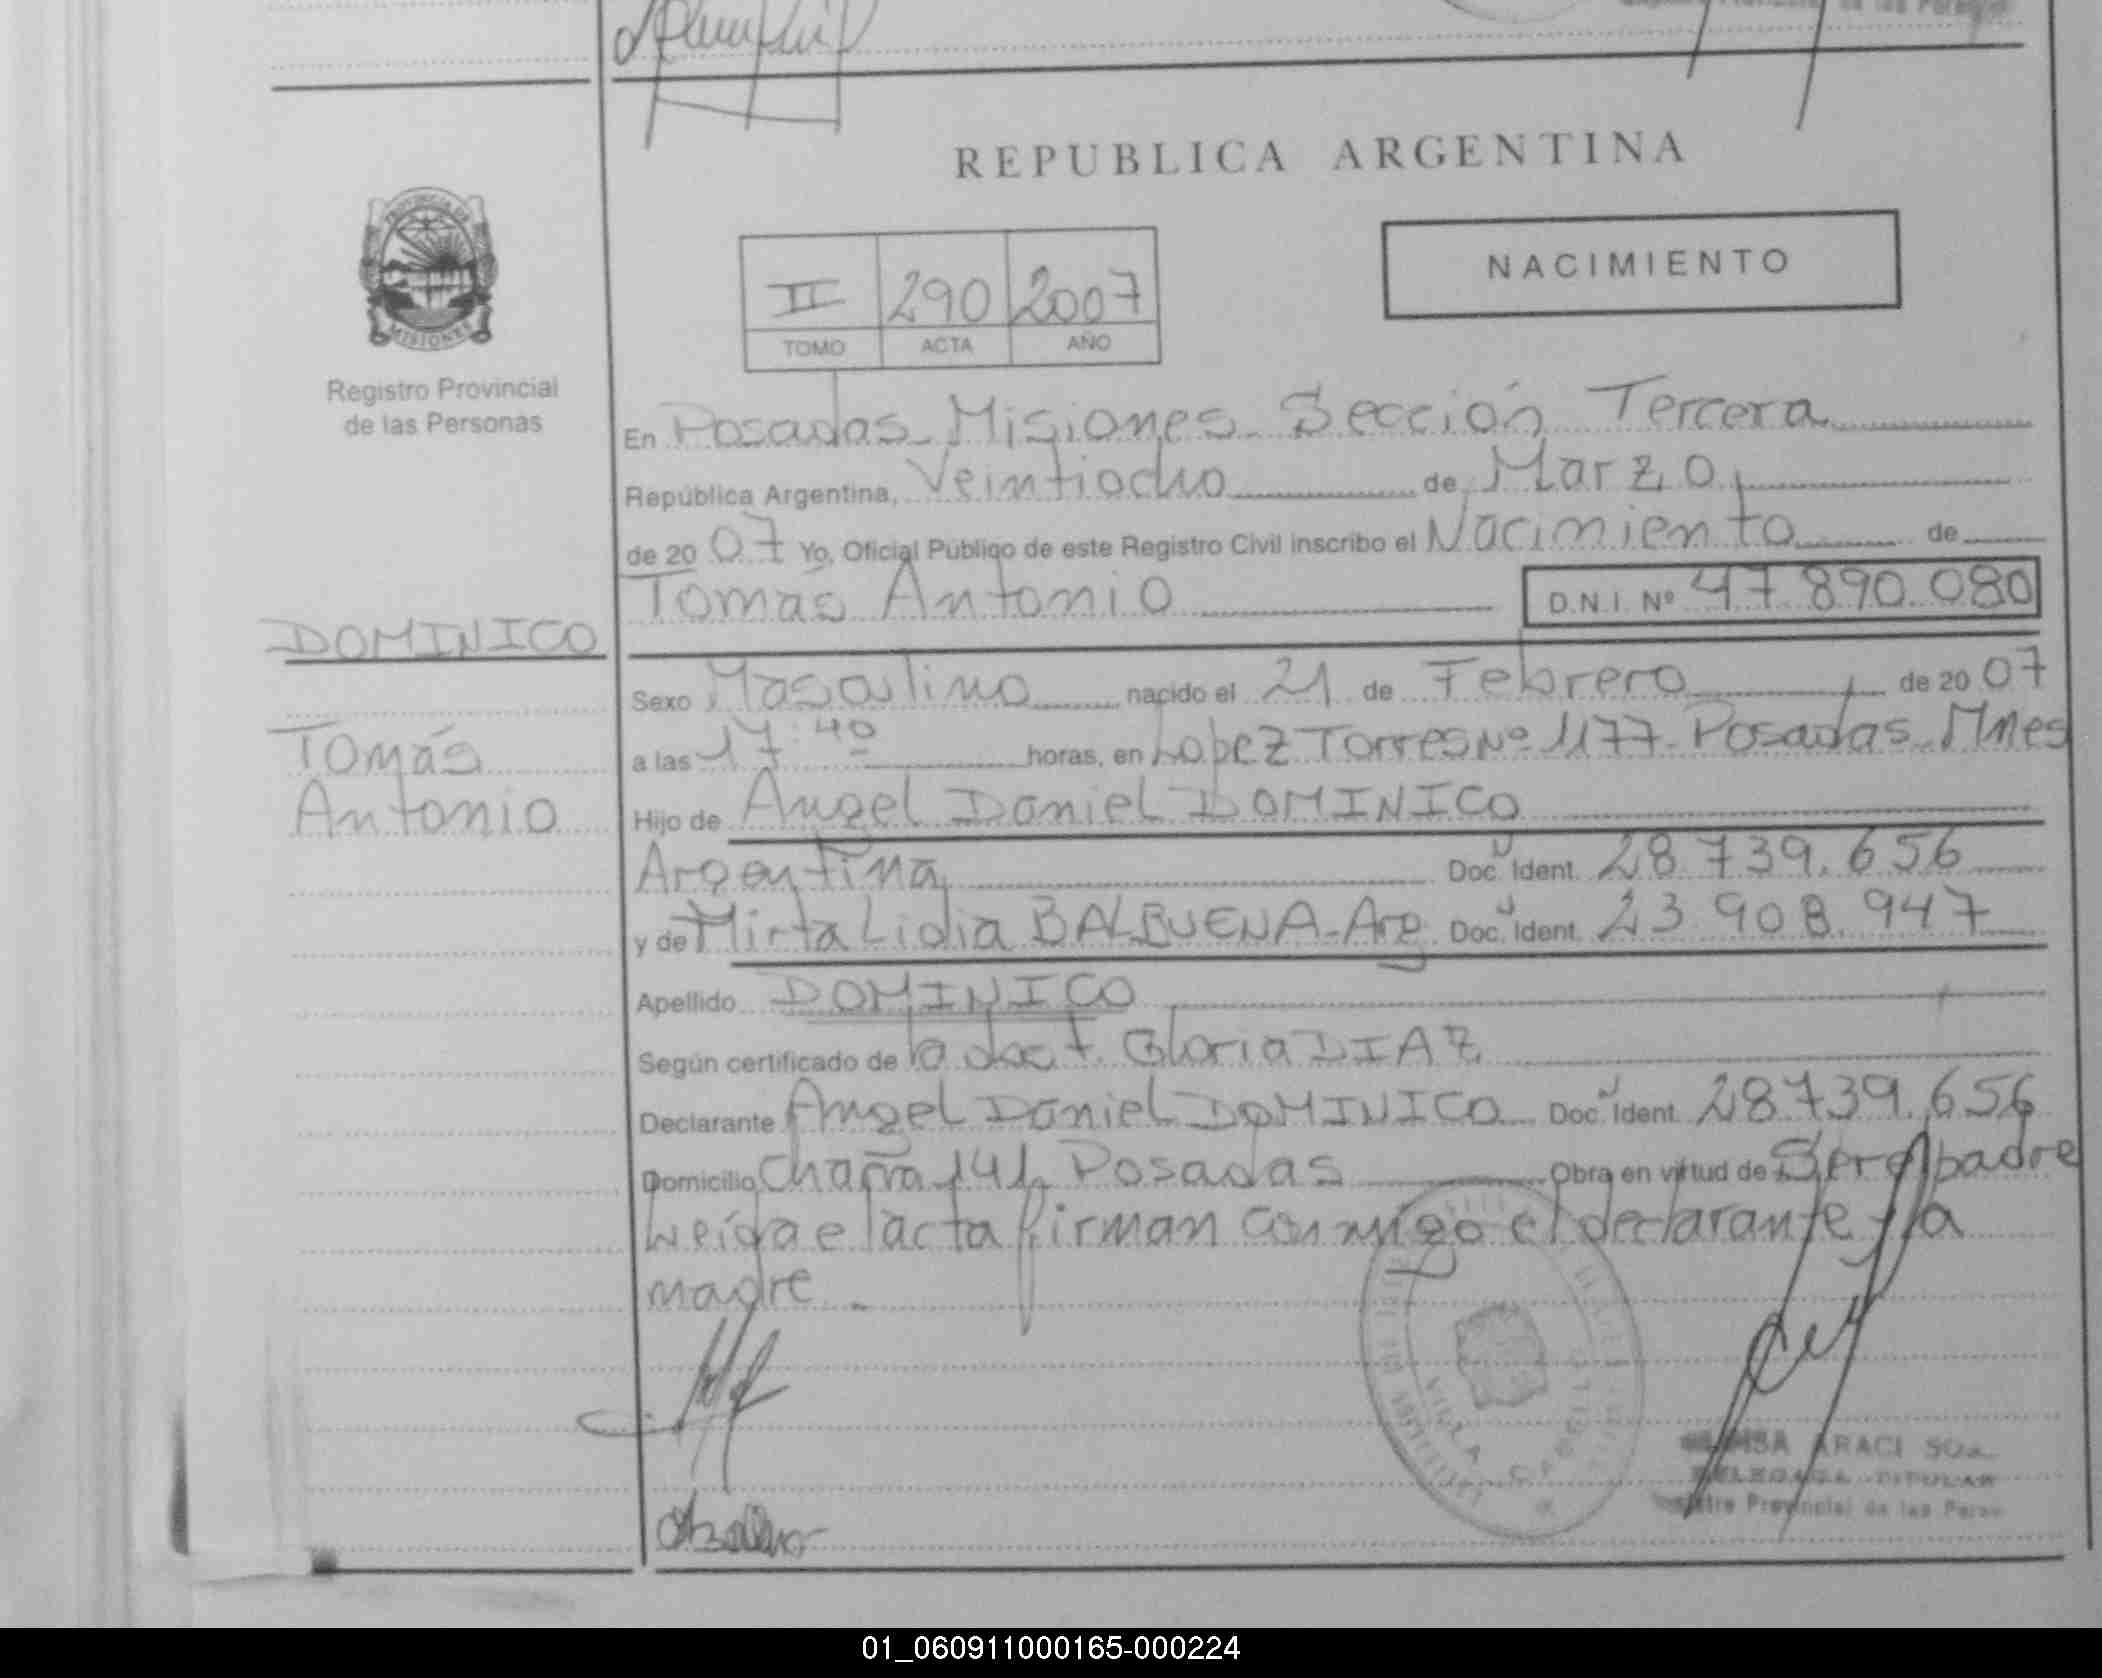 REPUBLICA ARGENTINA
PROVINCIA DE
MISIONES
Registro Provincial
de las Personas
NACIMIENTO
II 290 2007
TOMO ACTA AÑO
En Posadas Misiones Sección Tercera
República Argentina, Veintiocho de Marzo
de 20 07 Yo, Oficial Público de este Registro Civil inscribo el Nacimiento de
Tomás Antonio D.N.I. Nº 47.890.080
DOMINICO
Tomás
Antonio
Sexo Masculino nacido el 21 de Febrero de 20 07
a las 17:40 horas, en Lopez Torres Nº 1177 Posadas Mnes
Hijo de Angel Daniel DOMINICO
Argentina Doc. Ident. 28.739.656
y de Mirta Lidia BALBUENA - Arg Doc. Ident. 23.908.947
Apellido DOMINICO
Según certificado de la doct. Gloria DIAZ
Declarante Angel Daniel DOMINICO Doc. Ident. 28739.656
Domicilio 141 Posadas Obra en virtud de Ser el padre
Leida el acta firman conmigo el declarante y la
madre.
VILLA
ARACI
DELEGADA TITULAR
Provincial de las
01_060911000165-000224